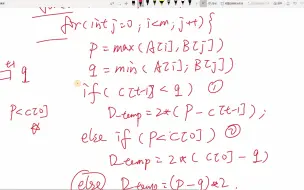 for(int j=0, i<m, j++){
P = max(A[i], B[j])
t+1 q = min(A[i], B[j])
q
if( C[t-1] < q ) ①
P<C[0] D_temp = 2*(P - C[t-1]);
else if (P<C[0]) ②
D_temp = 2*( C[0] - q)
else D_temp=(P-q)*2.